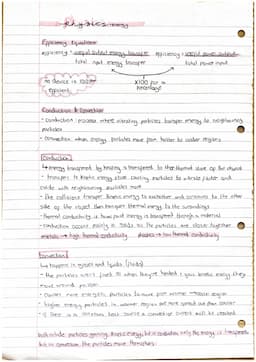 physics: energy
Efficiency Equations
efficiency = useful output energy transfer efficiency = useful power output
total input energy transfer total power input
no device is 100%
efficient
x100 for a
percentage!
Conduction & Convection
- conduction: process where vibrating particles transfer energy to neighbouring
particles
- convection: when energy particles move from hotter to cooler regions
Conduction
↳ energy transferred by heating is transferred to the thermal store of the object
- transfers to kinetic energy store causing particles to vibrate faster and
collide with neighbouring particles more
- The collisions transfer kinetic energy to continue and continues to the other
side of the object then transfers thermal energy to the surroundings
- thermal conductivity is how much energy is transferred through a material
- conduction occurs mainly in solids as the particles are closer together
metals → high thermal conductivity plastics → low thermal conductivity
Convection
↳ happens in gases and liquids (fluids)
- the particles aren't fixed so when they're heated & gain kinetic energy they
move around
- energetic particles to move from warmer region to cooler
higher energy particles in warmer region are more spread out than cooler
- if there is a constant heat source a convection current will be created
both include particles gaining kinetic energy, but in conduction only the energy is transferred
but in convection the particles move themselves.